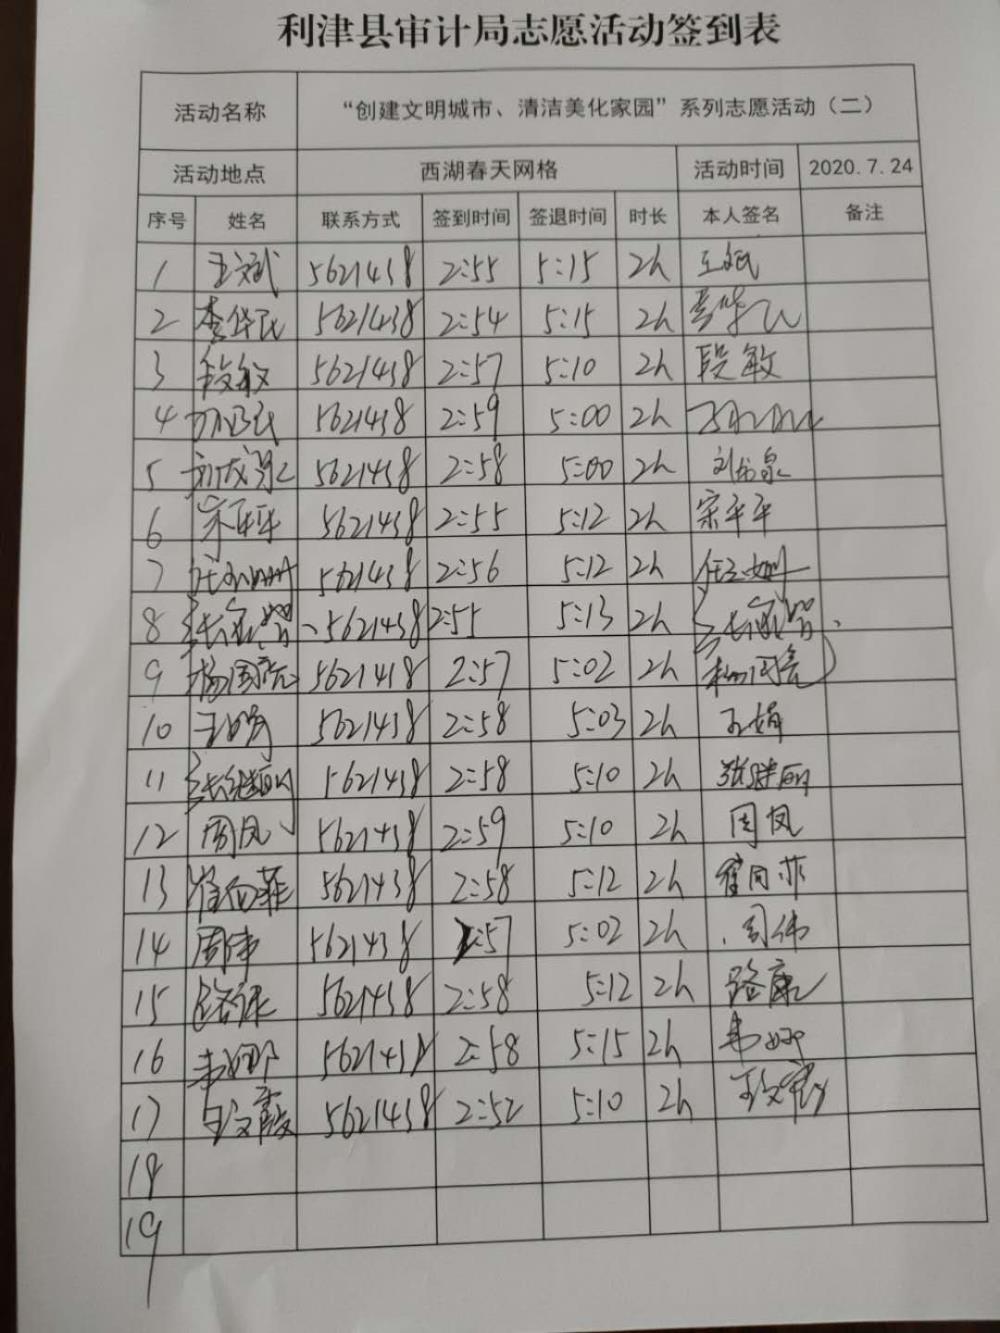 利津县审计局志愿活动签到表
活动名称 “创建文明城市、清洁美化家园”系列志愿活动（二）
活动地点 西湖春天网格 活动时间 2020.7.24
序号 姓名 联系方式 签到时间 签退时间 时长 本人签名 备注
1 王斌 5621438 2:55 5:15 2h 王斌
2 李华民 5621438 2:54 5:15 2h
3 段敏 5621438 2:57 5:10 2h 段敏
4 5621438 2:59 5:00 2h
5 5621438 2:58 5:00 2h
6 宋平平 5621438 2:55 5:12 2h 宋平平
7 5621438 2:56 5:12 2h
8 5621438 2:55 5:13 2h
9 杨国亮 5621438 2:57 5:02 2h 杨国亮
10 王娟 5621438 2:58 5:03 2h 王娟
11 张继丽 5621438 2:58 5:10 2h 张继丽
12 周凤 5621438 2:59 5:10 2h 周凤
13 崔向菲 5621438 2:58 5:12 2h 崔向菲
14 周伟 5621438 2:57 5:02 2h 周伟
15 路康 5621438 2:58 5:12 2h 路康
16 韦娜 5621438 2:58 5:15 2h 韦娜
17 王文霞 5621438 2:52 5:10 2h 王文霞
18
19